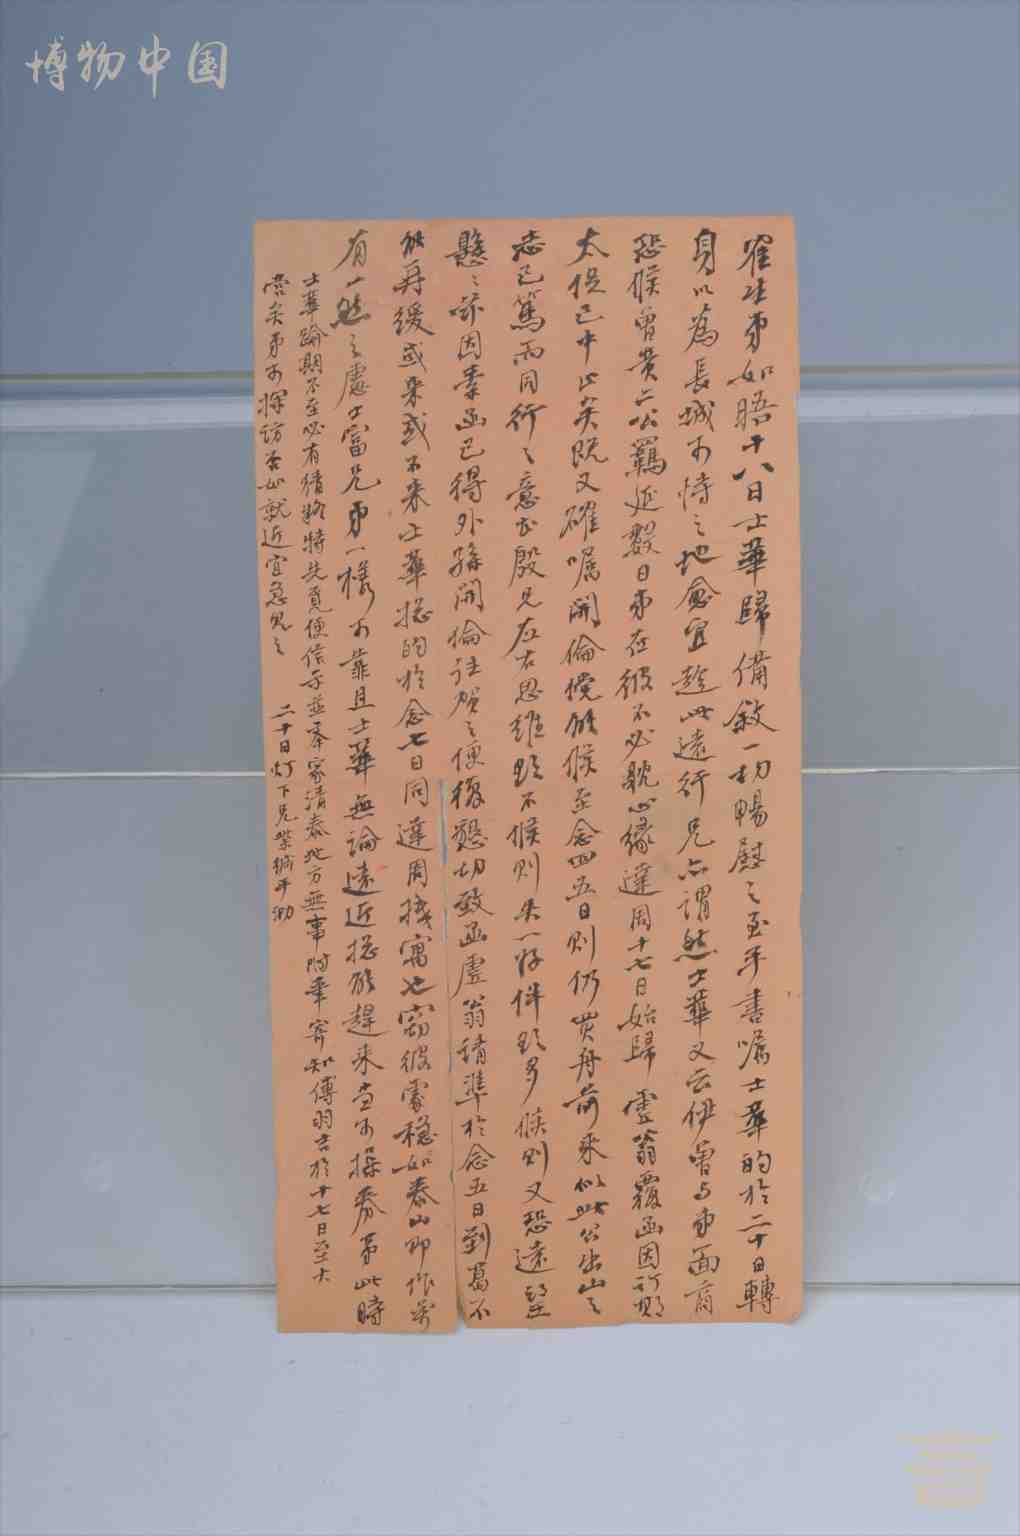 博物中国
弟如晤十八日士華歸備敘一切暢慰之至手書囑士華的於二十日轉
身以為長城可恃之地愈宜趁此遠行兄亦謂然士華又云伊曾與弟面商
恐候曾黃二公羈延數日弟在彼不必耽心緣達周十七日始歸虛翁覆函因訂期
太促已中止矣既又確囑開倫儻能候至念四五日則仍買舟前來似此公出山之
志已篤而同行之意甚殷兄左右思維點不候則失一好伴點多候則又恐遠望
懸懸茲因專函已得外孫開倫往賀之便復懇切致函虛翁請準於念五日到葛不
能再緩或來或不來士華總的於念七日同達周機寓也竊彼處穩如泰山即作萬
有一然之處士富兄弟一樣可靠且士華無論遠近總能趕來當可操券弟此時
士華踰期不至必有情形特先覓便信示並舉家清泰地方無事附筆寄知傅羽言於十七日至大
營矣弟可探訪否如就近宜急覓之
二十日灯下兄平泐